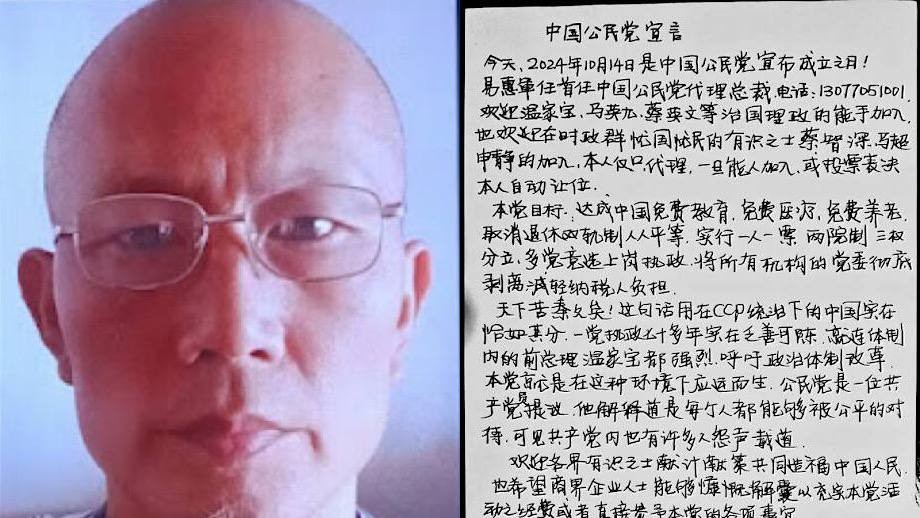 中国公民党宣言
今天，2024年10月14日是中国公民党宣布成立之日！
易惠军任首任中国公民党代理总裁电话：13077051001.
欢迎温家宝、马英九、蔡英文等治国理政的能手加入，
也欢迎在时政群忧国忧民的有识之士蔡智深、马超
申静的加入，本人仅只代理，一旦能人加入，或投票表决
本人自动让位.
本党目标：达成中国免费教育，免费医疗，免费养老
取消退休双轨制人人平等，实行一人一票 两院制 三权
分立，多党竞选上岗执政，将所有机构的党委彻底
剥离减轻纳税人负担.
天下苦秦久矣！这句话用在CCP统治下的中国实在
恰如其分，一党执政七十多年实在乏善可陈，高连体制
内的前总理温家宝都强烈呼吁政治体制改革.
是在这种环境下应运而生，公民党是一位共
产党员提议，他解释道是每个人都能够被公平的对
待，可见共产党内也有许多人怨声载道.
欢迎各界有识之士献计献策共同造福中国人民.
也希望商界企业人士能够慷慨解囊以充实本党活
动之经费或者直接参予本党的各项事宜